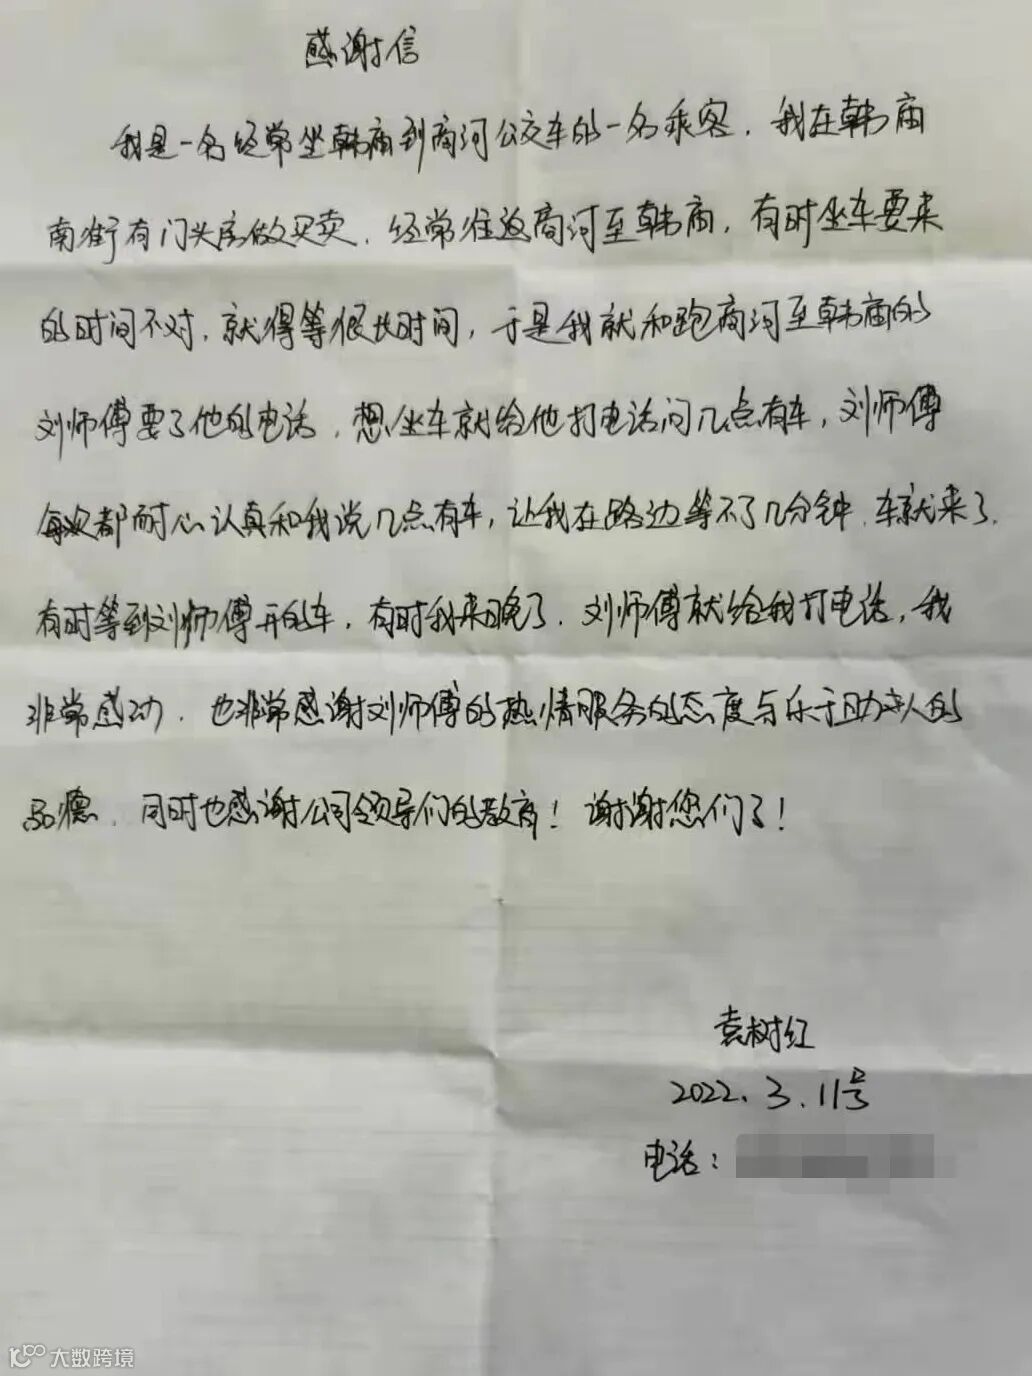 感谢信
我是一名经常坐韩庙到商河公交车的一名乘客. 我在韩庙
南街有门头房做买卖. 经常往返商河至韩庙, 有时坐车要来
的时间不对. 就得等很长时间, 于是我就和跑商河至韩庙的
刘师傅要了他的电话. 想坐车就给他打电话问几点有车, 刘师傅
每次都耐心认真和我说几点有车, 让我在路边等不了几分钟. 车就来了.
有时等到刘师傅开的车, 有时我来晚了. 刘师傅就给我打电话, 我
非常感动. 也非常感谢刘师傅的热情服务的态度与乐于助人的
品德. 同时也感谢公司领导们的教育! 谢谢您们了!
袁树红
2022. 3. 11号
电话:
大数跨境